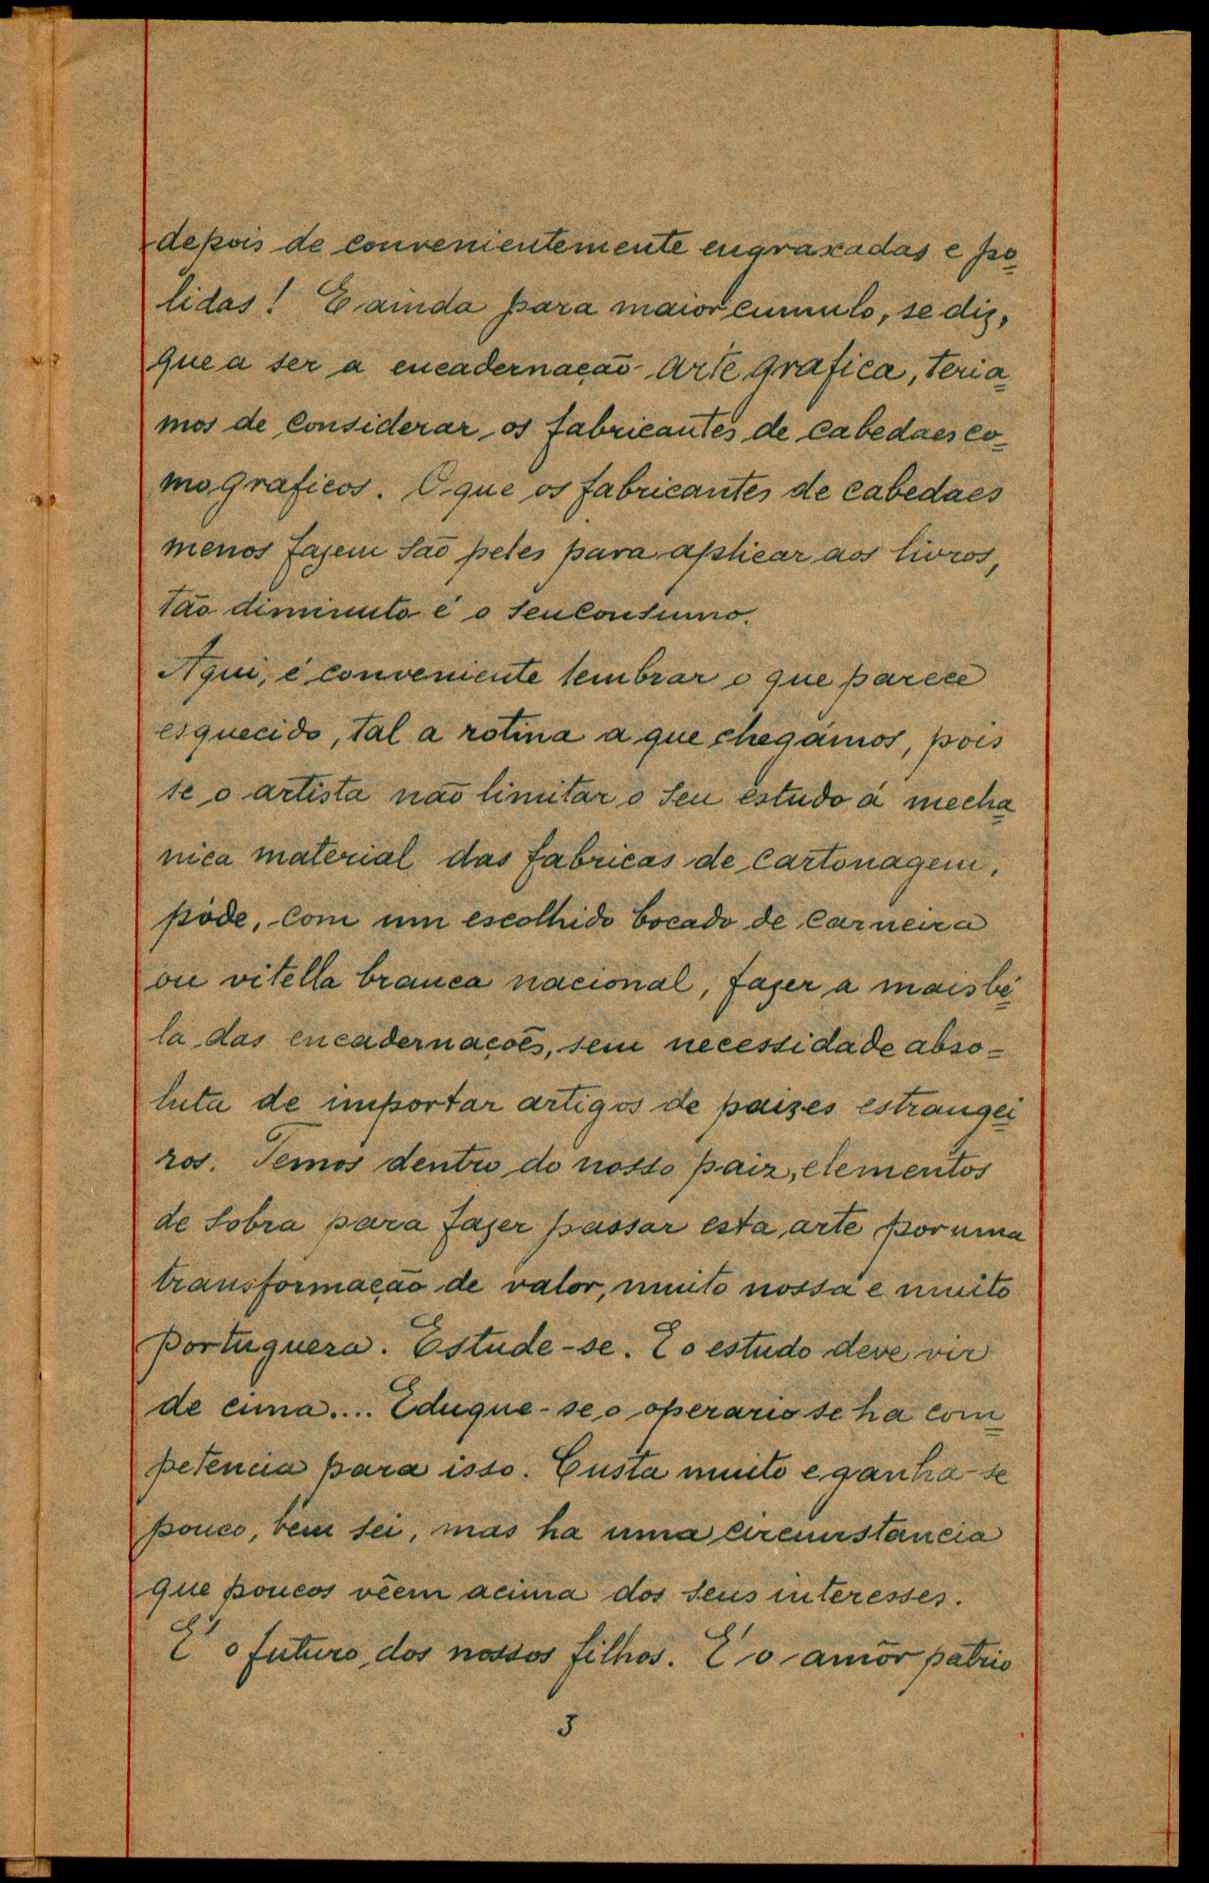 depois de convenientemente engraxadas e po-
lidas! E ainda para maior cumulo, se diz,
que a ser a encadernação Arte grafica, teria-
mos de considerar os fabricantes de cabedaes co-
mo graficos. O que os fabricantes de cabedaes
menos fazem são peles para aplicar aos livros,
tão diminuto é o seu consumo.
Aqui, é conveniente lembrar o que parece
esquecido, tal a rotina a que chegámos, pois
se o artista não limitar o seu estudo á mecha-
nica material das fabricas de cartonagem,
póde, com um escolhido bocado de carneira
ou vitella branca nacional, fazer a mais bé-
la das encadernações, sem necessidade abso-
luta de importar artigos de paizes estrangei-
ros. Temos dentro do nosso paiz, elementos
de sobra para fazer passar esta arte por uma
transformação de valor, muito nossa e muito
portugueza. Estude-se. E o estudo deve vir
de cima.... Eduque-se o operario se ha com-
petencia para isso. Custa muito e ganha-se
pouco, bem sei, mas ha uma circumstancia
que poucos vêem acima dos seus interesses.
E' o futuro dos nossos filhos. E' o amôr patrio
3